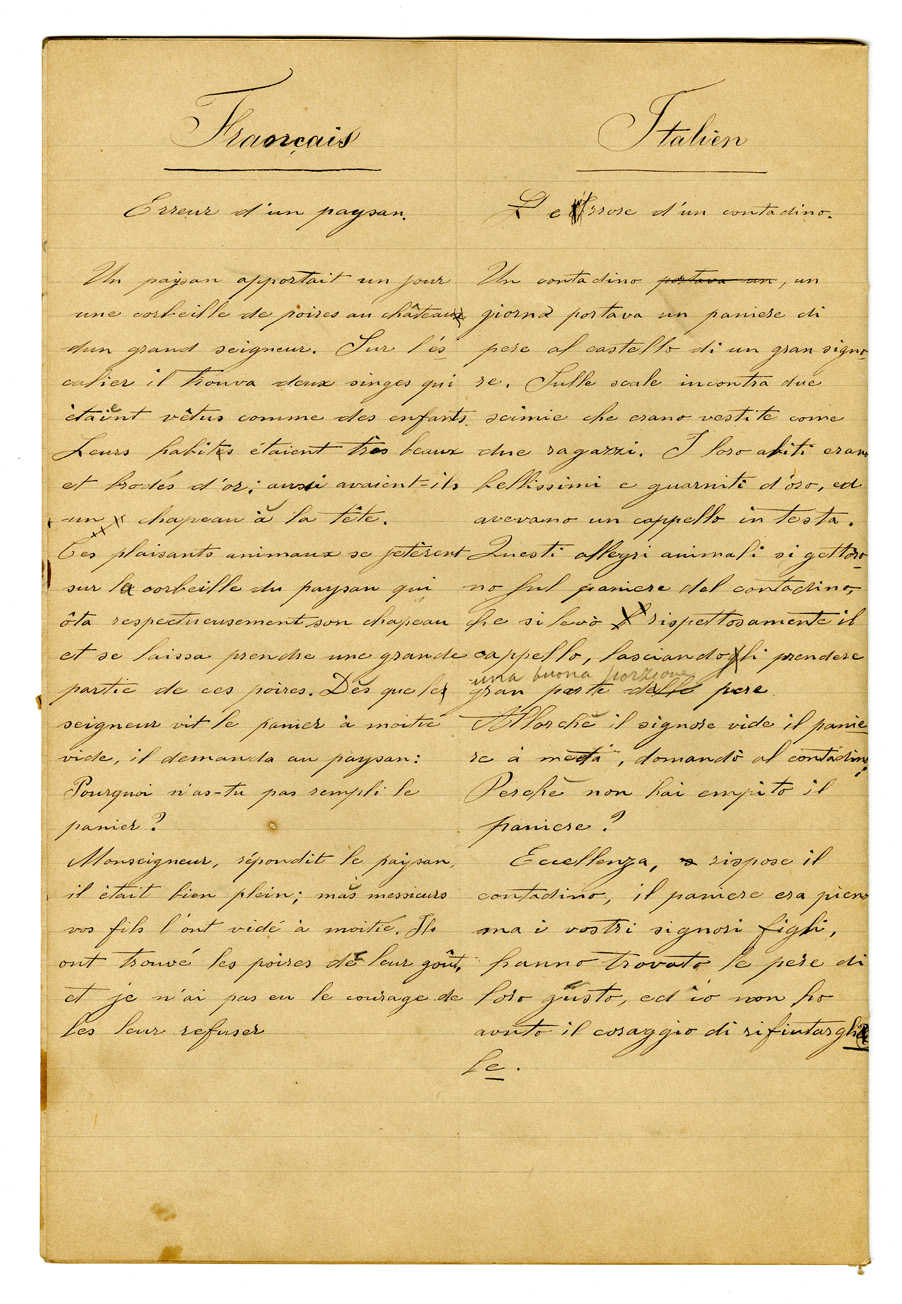 Français
Erreur d'un paysan.
Un paysan apportait un jour
une corbeille de poires au château
d'un grand seigneur. Sur l'es
calier il trouva deux singes qui
étaient vêtus comme des enfants.
Leurs habits étaient très beaux
et brodés d'or; aussi avaient-ils
un chapeau à la tête.
Ces plaisants animaux se jetèrent
sur la corbeille du paysan qui
ôta respectueusement son chapeau
et se laissa prendre une grande
partie de ces poires. Dès que le
seigneur vit le panier à moitié
vide, il demanda au paysan:
Pourquoi n'as-tu pas rempli le
panier?
Monseigneur, répondit le paysan,
il était bien plein; mais messieurs
vos fils l'ont vidé à moitié. Ils
ont trouvé les poires de leur goût,
et je n'ai pas eu le courage de
les leur refuser
Italien
Errore d'un contadino.
Un contadino portava un, un
giorno portava un paniere di
pere al castello di un gran signo-
re. Sulle scale incontra due
scimie che erano vestite come
due ragazzi. I loro abiti eran
bellissimi e guarniti d'oro, ed
avevano un cappello in testa.
Questi allegri animali si gettoro-
no sul paniere del contadino,
che si levò rispettosamente il
cappello, lasciandogli prendere
una buona porzione
gran parte delle pere
Allorchè il signore vide il panie-
re a metà, domandò al contadino:
Perchè non hai empito il
paniere?
Eccellenza, rispose il
contadino, il paniere era pieno
ma i vostri signori figli,
hanno trovato le pere di
loro gusto, ed io non ho
avuto il coraggio di rifiutarglie
le.